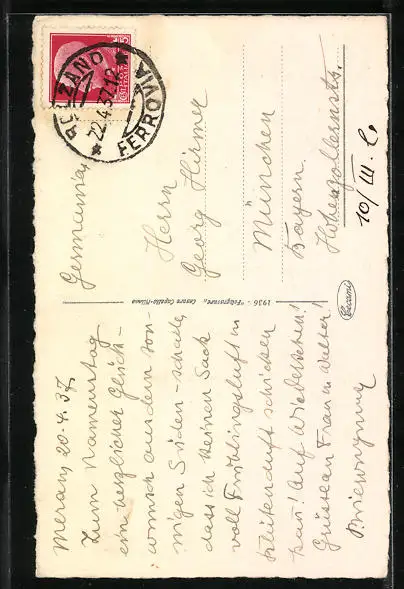 Meran, 20.4.37.
Zum Namenstag
ein herzlicher Glück-
wunsch aus dem son-
nigen Süden – schade,
dass ich keinen Sack
voll Frühlingsluft u
Blütenduft schicken
kann! Auf Wiedersehen!
Grüsse an Frau u
1936 - "Fotogravure" Cesare Capello-Milano
Cecami
BOLZANO
22.4.37.12
FERROVIA
Germania,
Herrn
Georg Hirmer
München
Bayern.
Hohenzollernstr.
10/III. l.